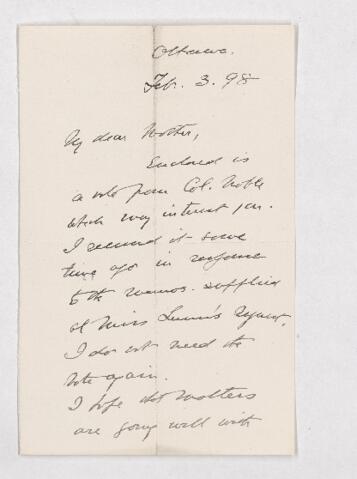 Ottawa.
Feb. 3. 98
My dear Mother,
Enclosed is
a note from Col. Noble
which may interest you.
I received it some
time ago in response
to the memos. supplied
at Miss request.
I do not need the
note again.
I hope that matters
are going well with